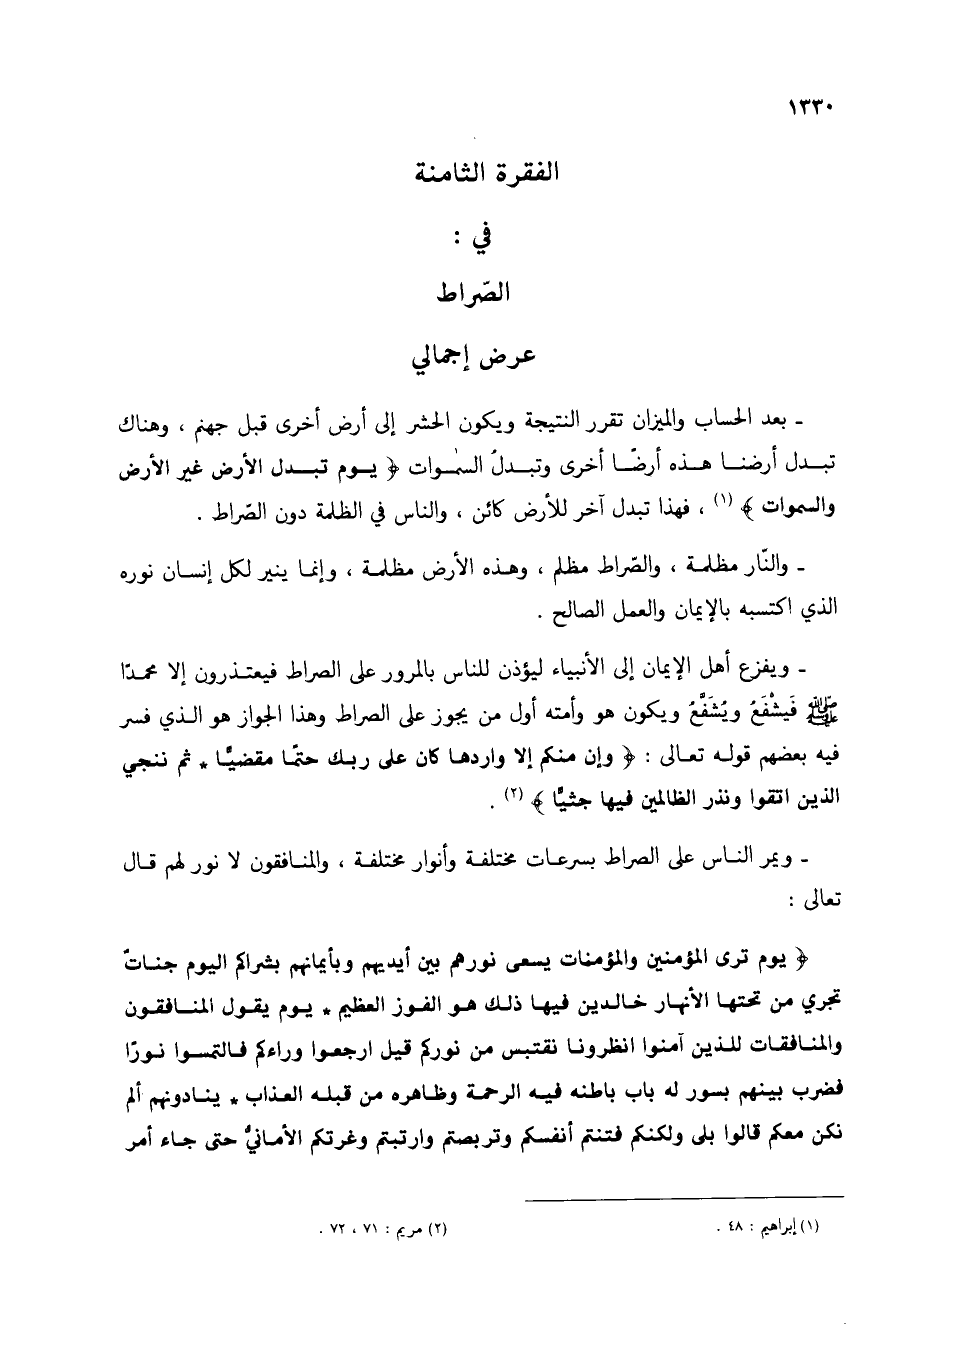 ١٣٣٠
الفقرة الثامنة
في :
الصّراط
عرض إجمالي
ـ بعد الحساب والميزان تقرر النتيجة ويكون الحشر إلى أرض أخرى قبل جهنم ، وهناك
تبدل أرضنا هذه أرضًا أخرى وتبدلُ السمٰوات ﴿ يوم تبدل الأرض غير الأرض
والسموات ﴾ (١) ، فهذا تبدل آخر للأرض كائن ، والناس في الظلمة دون الصّراط .
ـ والنّار مظلمة ، والصّراط مظلم ، وهذه الأرض مظلمة ، وإنما ينير لكل إنسان نوره
الذي اكتسبه بالإيمان والعمل الصالح .
ـ ويفزع أهل الإيمان إلى الأنبياء ليؤذن للناس بالمرور على الصراط فيعتذرون إلا محمدًا
ﷺ فَيشْفَعُ ويُشَفَّعُ ويكون هو وأمته أول من يجوز على الصراط وهذا الجواز هو الذي فسر
فيه بعضهم قوله تعالى : ﴿ وإن منكم إلا واردها كان على ربك حتمًا مقضيًّا * ثم ننجي
الذين اتقوا ونذر الظالمين فيها جثيًّا ﴾ (٢) .
ـ ويمر الناس على الصراط بسرعات مختلفة وأنوار مختلفة ، والمنافقون لا نور لهم قال
تعالى :
﴿ يوم ترى المؤمنين والمؤمنات يسعى نورهم بين أيديهم وبأيمانهم بشراكم اليوم جناتٌ
تجري من تحتها الأنهار خالدين فيها ذلك هو الفوز العظيم * يوم يقول المنافقون
والمنافقات للذين آمنوا انظرونا نقتبس من نوركم قيل ارجعوا وراءكم فالتمسوا نورًا
فضرب بينهم بسور له باب باطنه فيه الرحمة وظاهره من قبله العذاب * ينادونهم ألم
نكن معكم قالوا بلى ولكنكم فتنتم أنفسكم وتربصتم وارتبتم وغرتكم الأمانيُّ حتى جاء أمر
(١) إبراهيم : ٤٨ .
(٢) مريم : ٧١ ، ٧٢ .